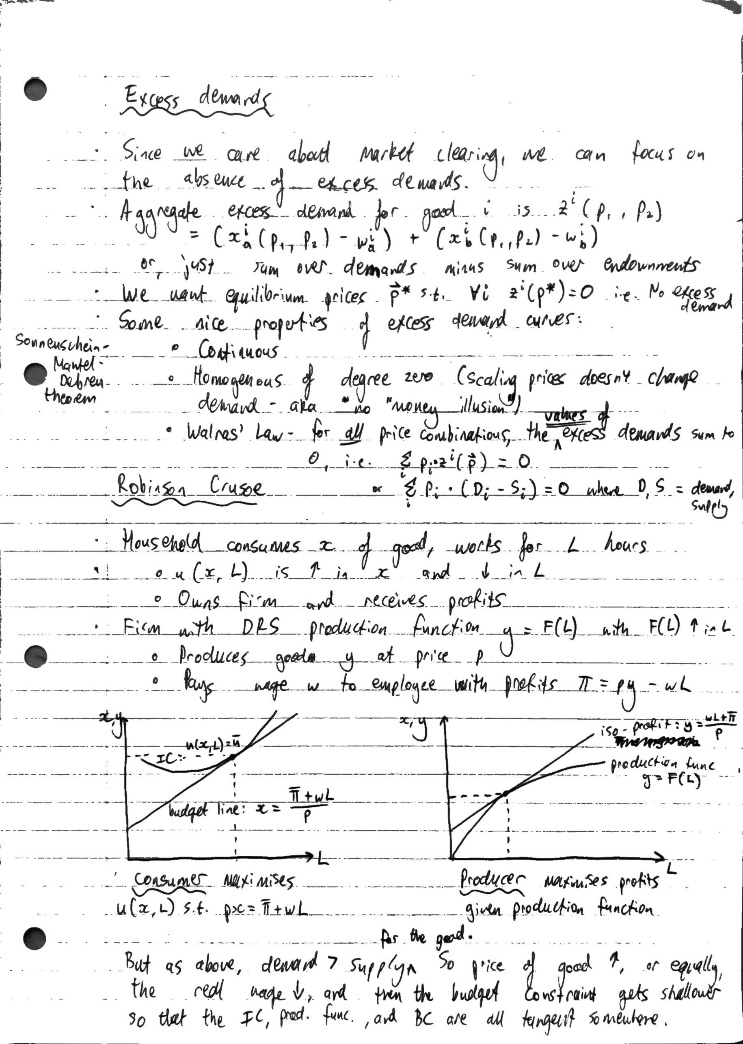 Excess demands
· Since we care about market clearing, we can focus on
the absence of excess demands.
· Aggregate excess demand for good i is zⁱ(p₁, p₂)
= (xₐⁱ(p₁, p₂) - wₐⁱ) + (x_bⁱ(p₁, p₂) - w_bⁱ)
or, just sum over demands minus sum over endowments
· We want equilibrium prices p⃗* s.t. ∀i zⁱ(p*)=0 i.e. No excess
demand
· Some nice properties of excess demand curves:
Sonnenschein-
Mantel-
Debreu
theorem
∘ Continuous
∘ Homogenous of degree zero (scaling prices doesn't change
demand - aka "no "money illusion")
∘ Walras' Law - for all price combinations, the values of excess demands sum to
0, i.e. Σᵢ pᵢ·zⁱ(p⃗) = 0
or Σᵢ Pᵢ·(Dᵢ - Sᵢ) = 0 where D, S = demand,
supply
Robinson Crusoe
· Household consumes x of good, works for L hours
∘ u(x, L) is ↑ in x and ↓ in L
∘ Owns firm and receives profits
· Firm with DRS production function y = F(L) with F(L) ↑ in L
∘ Produces good y at price p
∘ Pays wage w to employee with profits π = py - wL
x,y
IC: u(x,L)=ū
budget line: x = (π̄ + wL)/p
L
Consumer maximises
u(x, L) s.t. px = π̄ + wL
x, y
iso-profit: y = (wL+π̄)/p
production func
y = F(L)
L
Producer maximises profits
given production function
But as above, demand > supply for the good. So price of good ↑, or equally,
the real wage ↓, and then the budget constraint gets shallower
so that the IC, prod. func., and BC are all tangent somewhere.